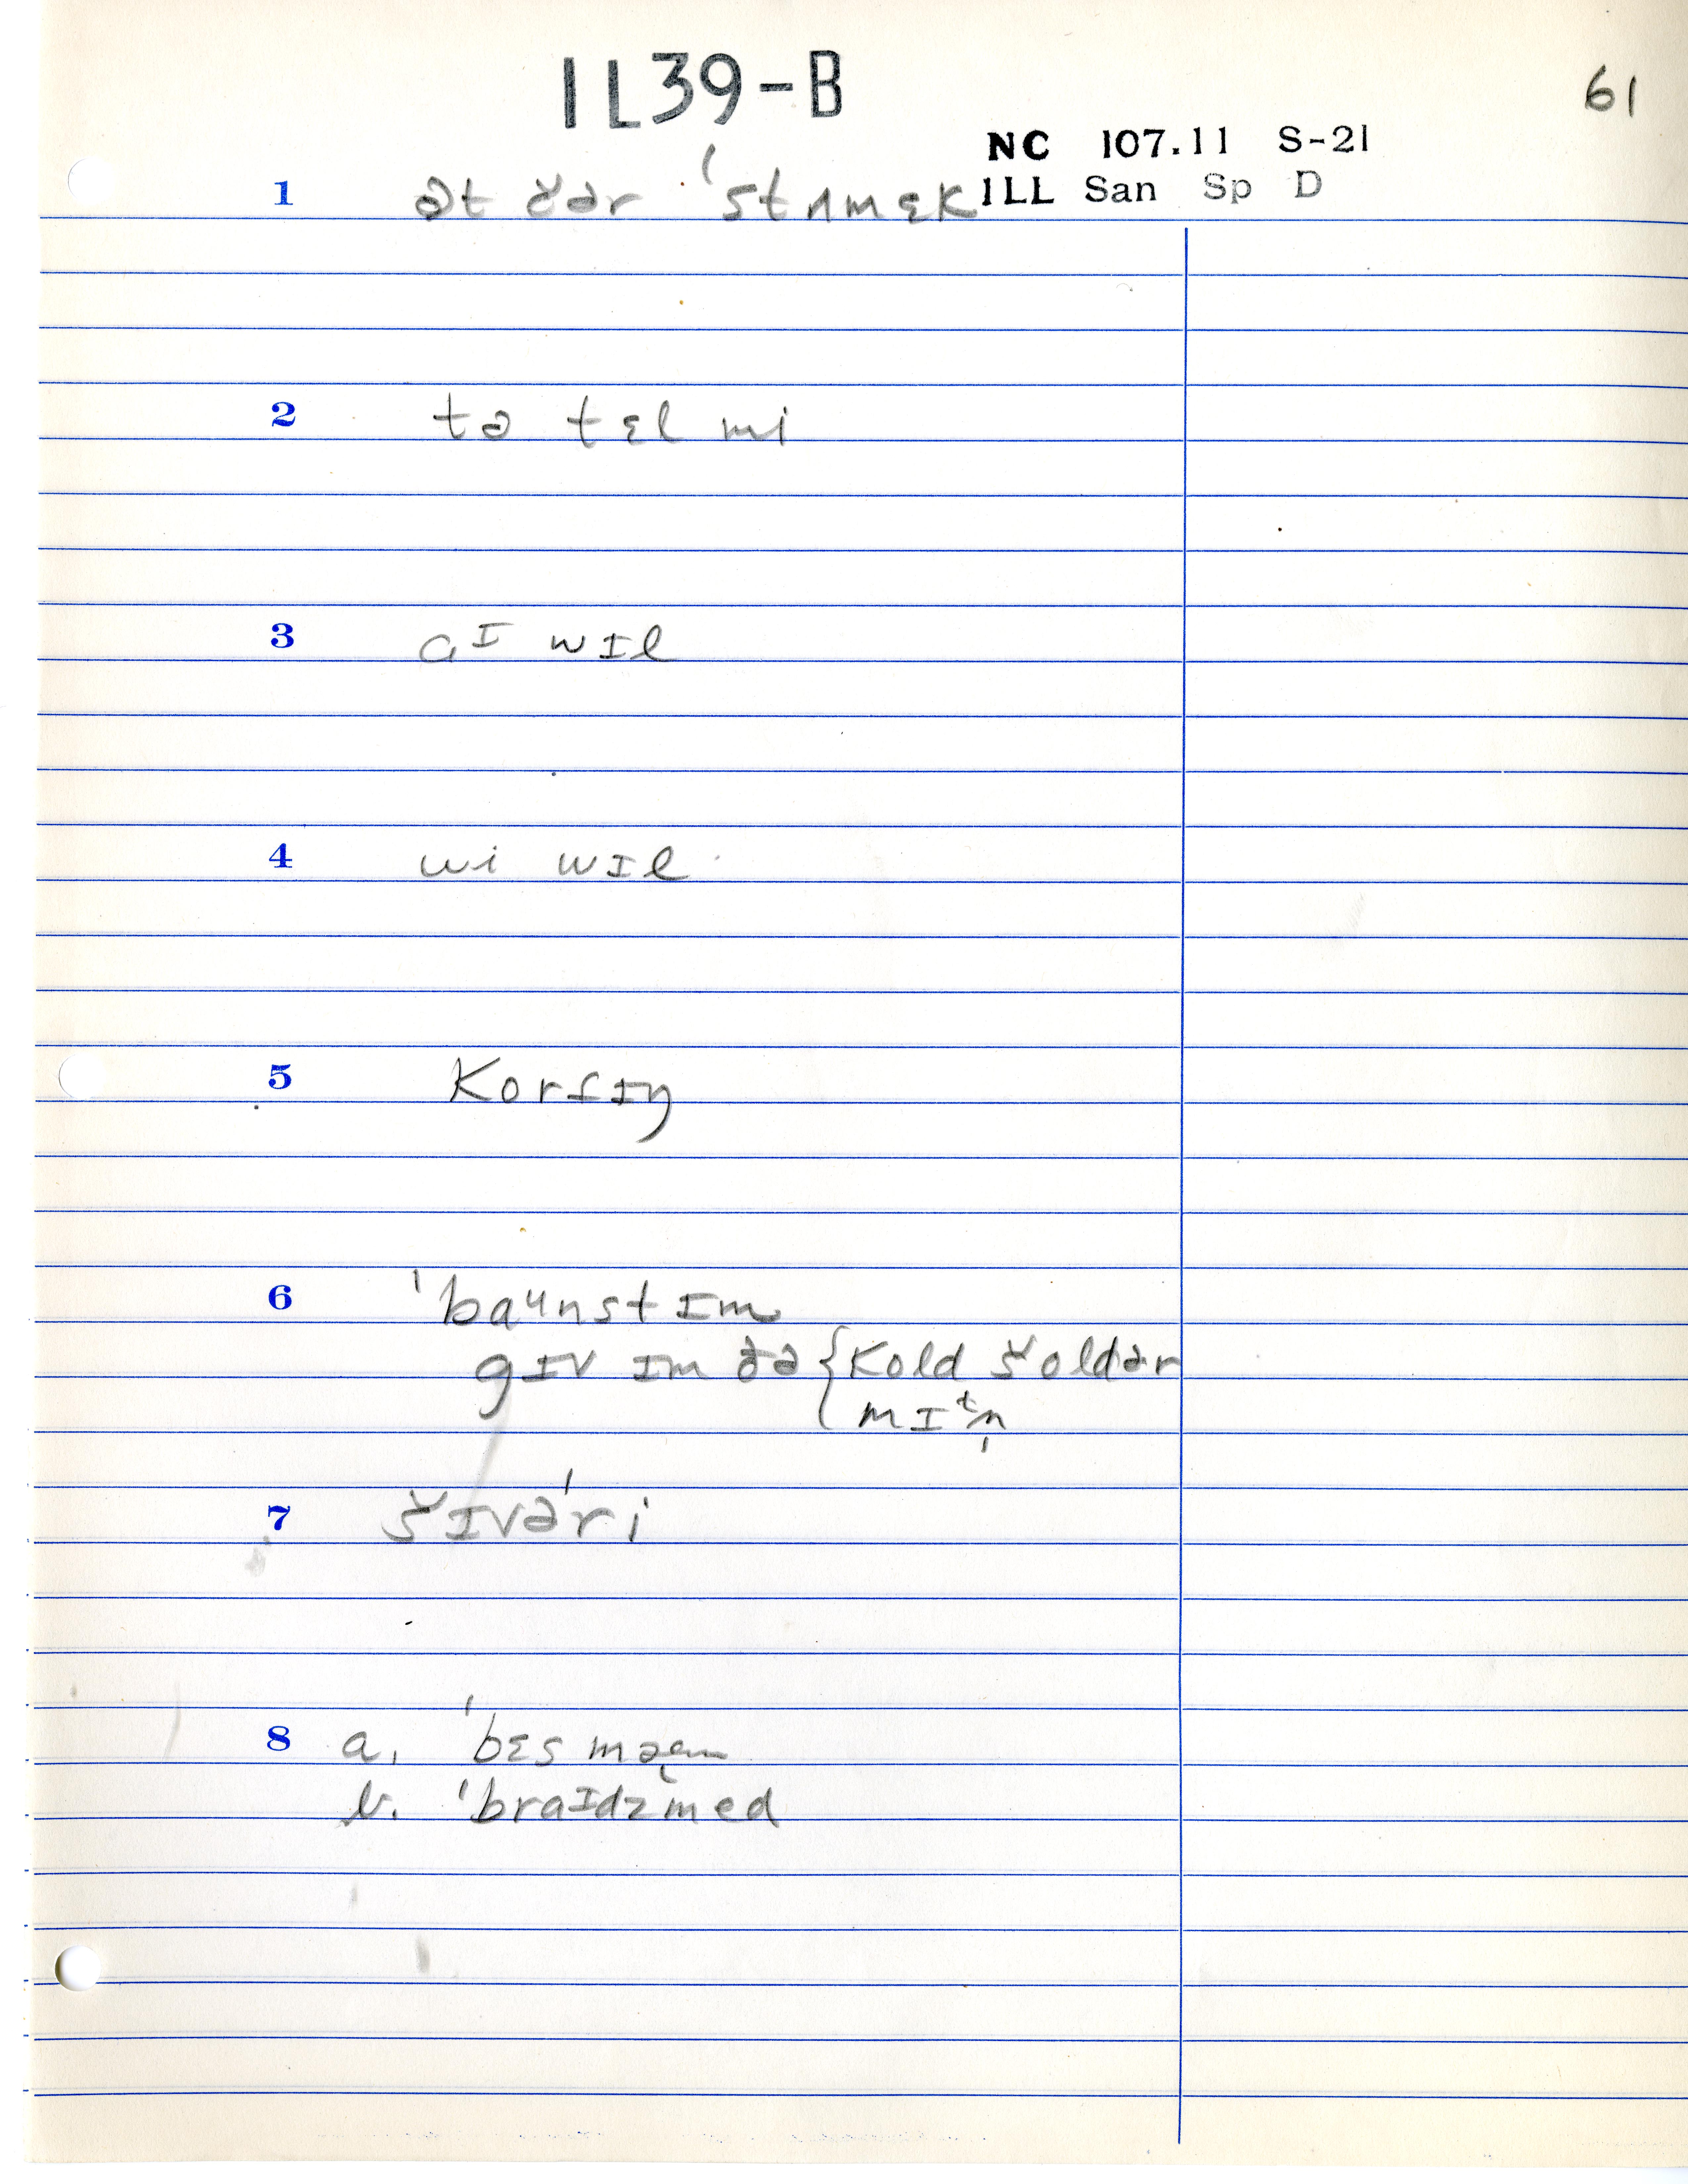 IL39-B
61
NC 107.11 S-21
ILL San Sp D
1 ət ðər ˈstʌmɛk
2 tə tɛl mi
3 aᴵ wɪl
4 wi wɪl
5 Korfɪŋ
6 ˈbaᵘnst ɪm
gɪv ɪm ðə { Kold šoldər
mɪᵗn̩
7 šɪvəˈri
8 a. ˈbɛs mæn
b. ˈbraɪdzmed